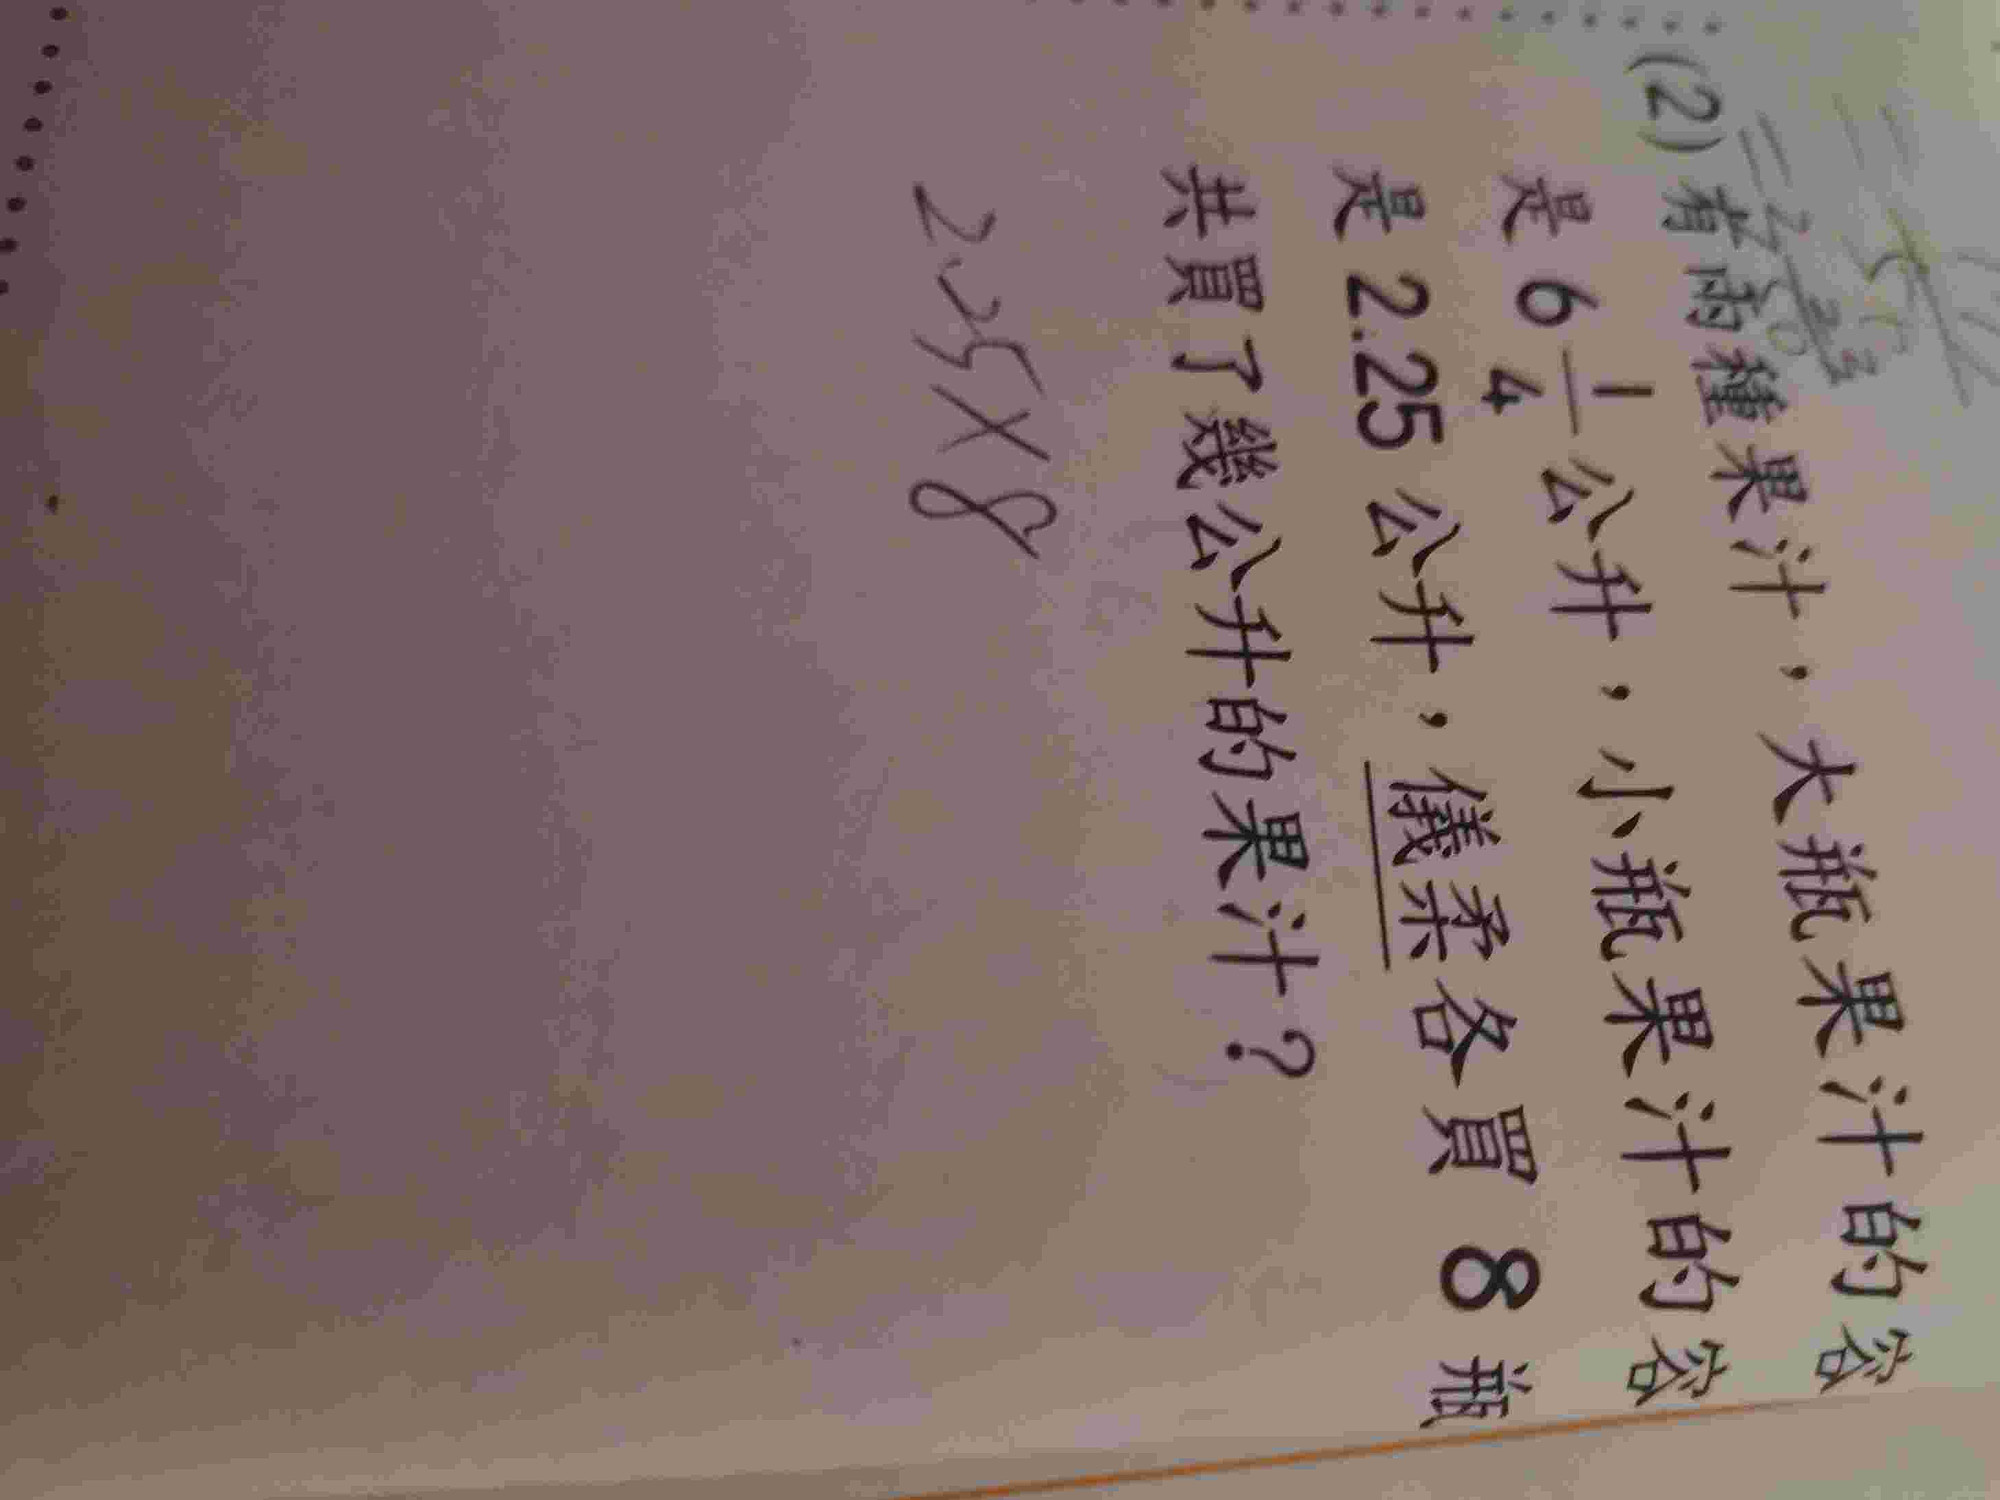 (2) 有兩種果汁，大瓶果汁的容
是 6 1/4 公升，小瓶果汁的容
是 2.25 公升，儀柔各買 8 瓶
共買了幾公升的果汁？
2.25×8